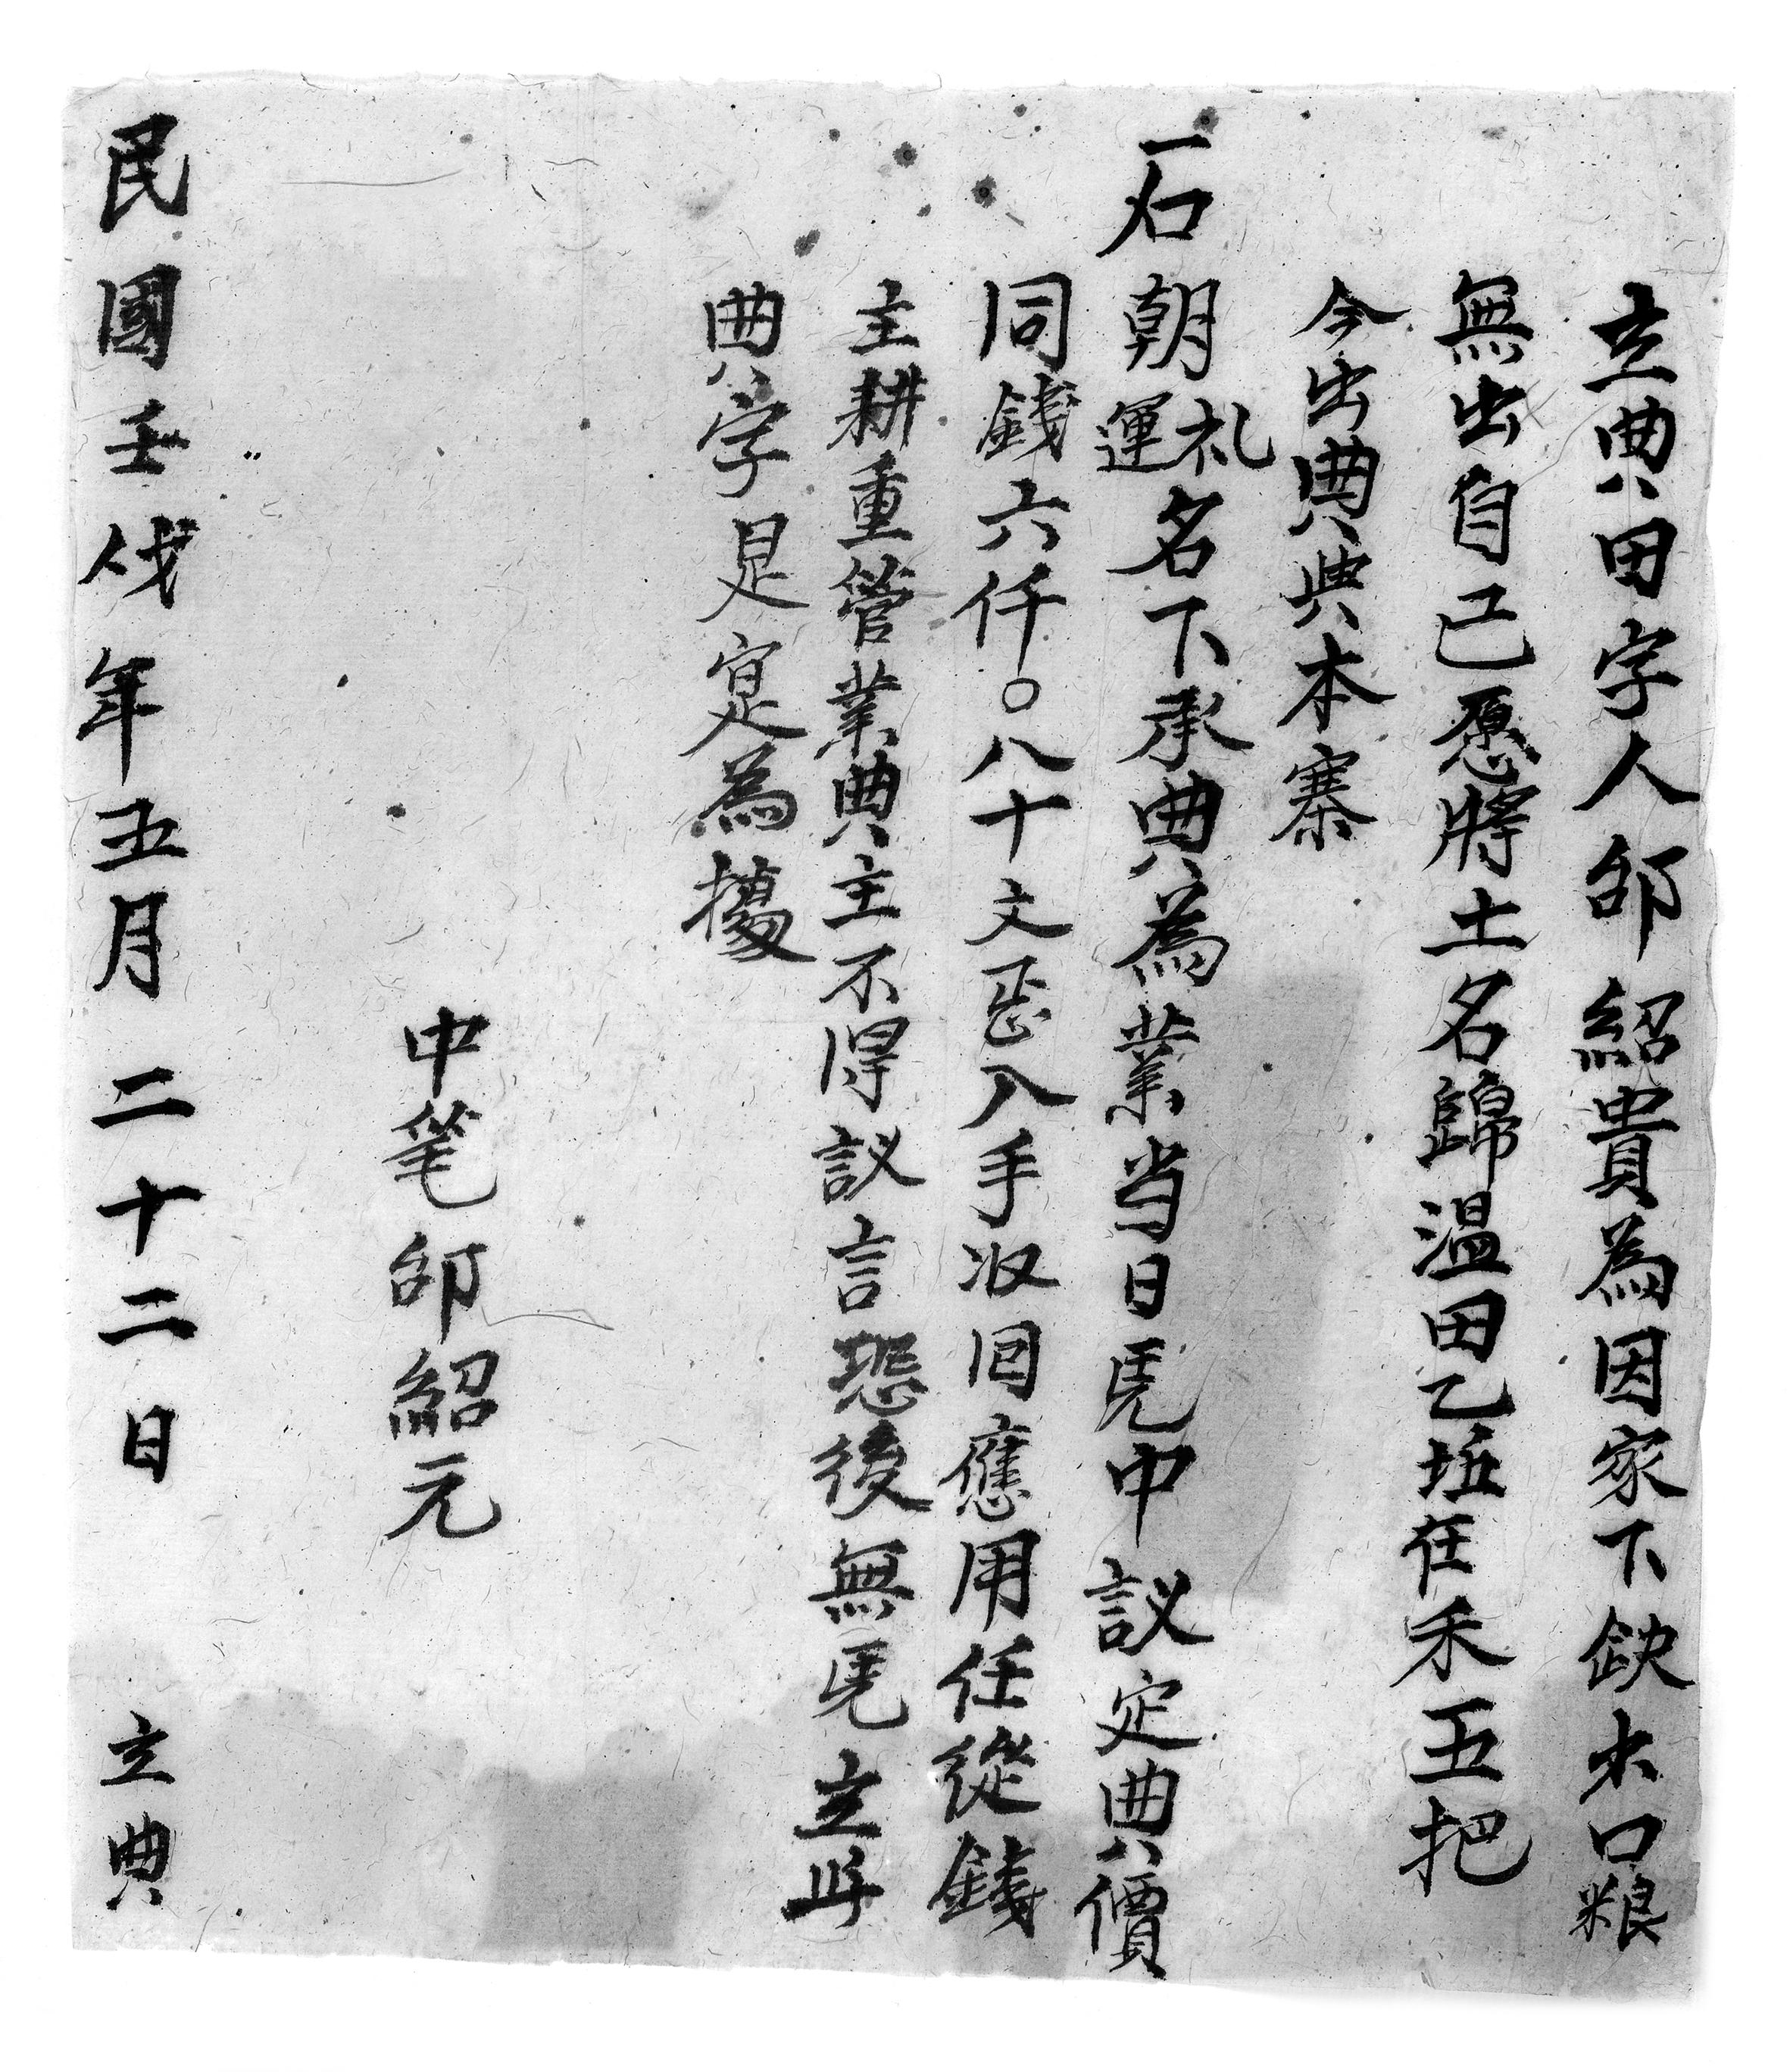 立典田字人邰紹貴為因家下缺少口粮
無出自己愿將土名歸温田乙坵在禾五把
今出典與本寨
一石朝礼運名下承典為業当日凴中議定典價
同錢六仟〇八十文正入手收回應用任從錢
主耕重管業典主不得議言恐後無凴立此
典字是寔為據
中笔邰紹元
民國壬戌年五月二十二日 立典